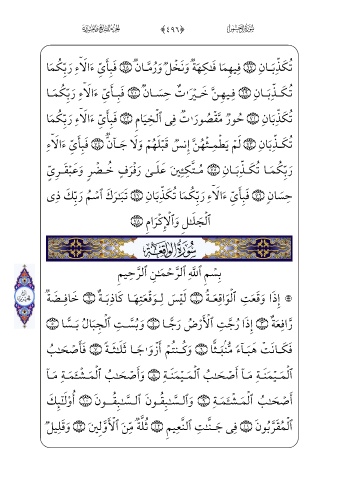 ﴿٤٩٦﴾
تُكَذِّبَانِ ۝ فِيهِمَا فَـٰكِهَةٌ وَنَخْلٌ وَرُمَّانٌ ۝ فَبِأَيِّ ءَالَآءِ رَبِّكُمَا
تُكَذِّبَانِ ۝ فِيهِنَّ خَيْرَٰتٌ حِسَانٌ ۝ فَبِأَيِّ ءَالَآءِ رَبِّكُمَا
تُكَذِّبَانِ ۝ حُورٌ مَّقْصُورَٰتٌ فِى ٱلْخِيَامِ ۝ فَبِأَيِّ ءَالَآءِ رَبِّكُمَا
تُكَذِّبَانِ ۝ لَمْ يَطْمِثْهُنَّ إِنسٌ قَبْلَهُمْ وَلَا جَآنٌّ ۝ فَبِأَيِّ ءَالَآءِ
رَبِّكُمَا تُكَذِّبَانِ ۝ مُتَّكِـِٔينَ عَلَىٰ رَفْرَفٍ خُضْرٍ وَعَبْقَرِىٍّ
حِسَانٍ ۝ فَبِأَيِّ ءَالَآءِ رَبِّكُمَا تُكَذِّبَانِ ۝ تَبَـٰرَكَ ٱسْمُ رَبِّكَ ذِى
ٱلْجَلَـٰلِ وَٱلْإِكْرَامِ ۝
سُورَةُ الْوَاقِعَةِ
بِسْمِ ٱللَّهِ ٱلرَّحْمَـٰنِ ٱلرَّحِيمِ
إِذَا وَقَعَتِ ٱلْوَاقِعَةُ ۝ لَيْسَ لِوَقْعَتِهَا كَاذِبَةٌ ۝ خَافِضَةٌ
رَّافِعَةٌ ۝ إِذَا رُجَّتِ ٱلْأَرْضُ رَجًّا ۝ وَبُسَّتِ ٱلْجِبَالُ بَسًّا ۝
فَكَانَتْ هَبَآءً مُّنۢبَثًّا ۝ وَكُنتُمْ أَزْوَٰجًا ثَلَـٰثَةً ۝ فَأَصْحَـٰبُ
ٱلْمَيْمَنَةِ مَآ أَصْحَـٰبُ ٱلْمَيْمَنَةِ ۝ وَأَصْحَـٰبُ ٱلْمَشْـَٔمَةِ مَآ
أَصْحَـٰبُ ٱلْمَشْـَٔمَةِ ۝ وَٱلسَّـٰبِقُونَ ٱلسَّـٰبِقُونَ ۝ أُو۟لَـٰٓئِكَ
ٱلْمُقَرَّبُونَ ۝ فِى جَنَّـٰتِ ٱلنَّعِيمِ ۝ ثُلَّةٌ مِّنَ ٱلْأَوَّلِينَ ۝ وَقَلِيلٌ